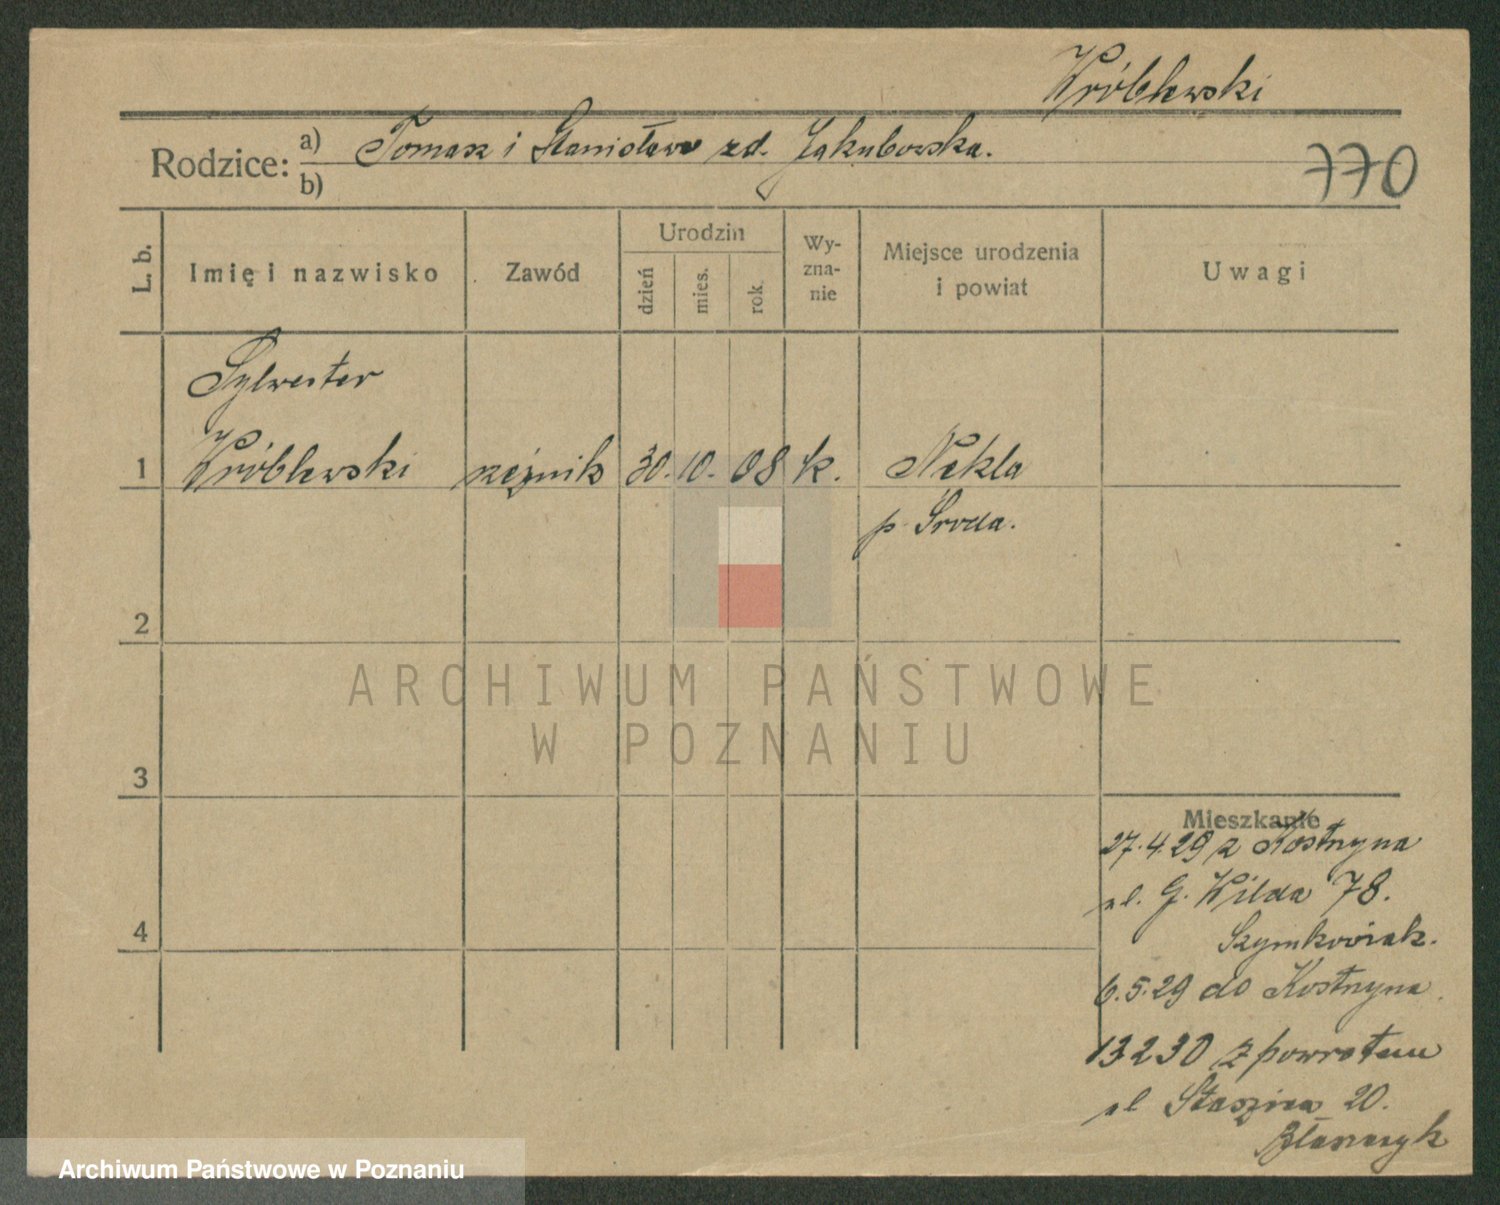 Wróblewski
Rodzice: a) Tomasz i Stanisława zd. Jakubowska.
b)
770
L. b. Imię i nazwisko Zawód Urodzin dzień mies. rok Wy-zna-nie Miejsce urodzenia i powiat Uwagi
Sylwester
1 Wróblewski rzeźnik 30. 10. 08 k. Nekla
p. Środa.
2
ARCHIWUM PAŃSTWOWE
W POZNANIU
3
Mieszkanie
27.4.29 z Kostrzyna
ul. G. Wilda 78.
4
Szymkowiak.
6.5.29 do Kostrzyna.
13 2 30 z powrotem
ul Staszica 20.
Błaszczyk
Archiwum Państwowe w Poznaniu